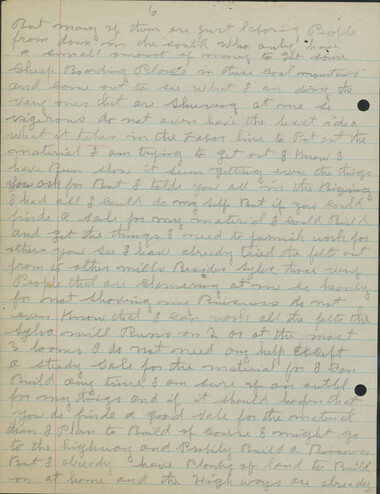 6
But many of them are just laboring People
from down in the south who only have
a small amont of money to get some
cheap Boarding Place in these cool mountains
and come out to see what I am doing the
very ones that are Shuving at me so
vigirous do not even have the least idea
what it takes in the Labor line to Put out the
material I am trying to get out I know I
have Bin slow it seem getting even the things
you ask for But I tolde you all in the Bigining
I had all I could do my self But if you could
finde a sale for my material I could Build
and get the things I need to furnish work for
others you see I have already tried the felts out
from 10 other mills Besides Sylva those very
People that are clamering at me so heavly
for not Shoving my Buisness do not
even know that I can work all the felts the
Sylva mill Runs on 2 or at the most
3 looms I do not need any help Except
a steady sale for the material for I can
Build any time I am sure of an outlet
for my things and if it should hapen that
you do finde a good sale for the material
than I Plan to Build of course I might go
to the highway and Probily Build a Buisness
But I already have Plenty of land to Build
on at home and the High ways are already